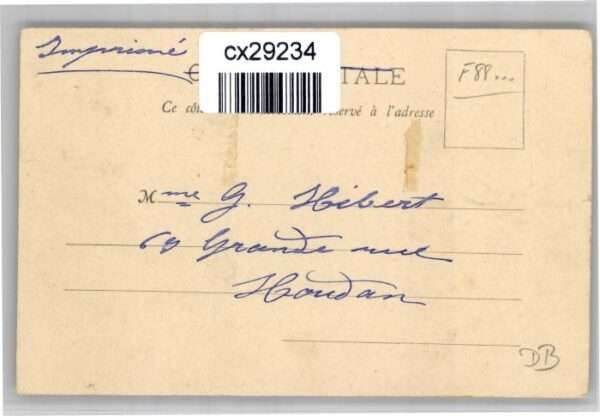 Imprimé
cx29234
C TALE
F88...
Ce côt servé à l'adresse
Mme G. Hébert
69 Grande rue
Houdan
DB